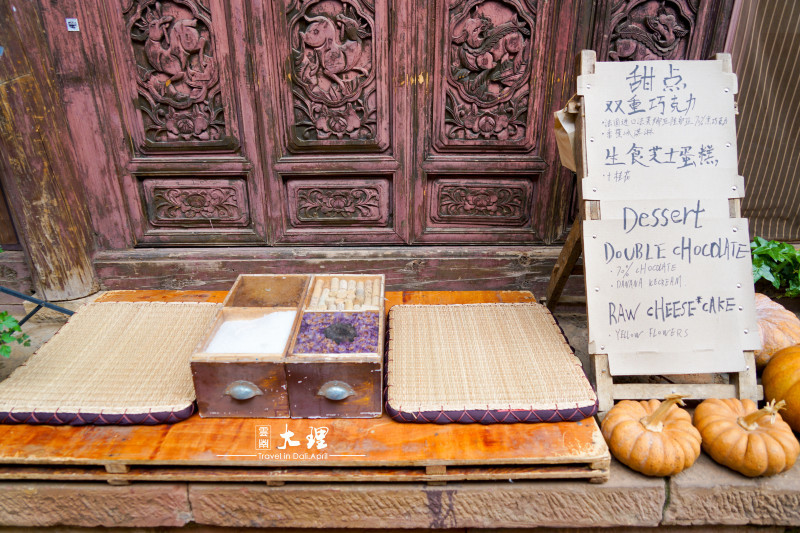 甜点
双重巧克力
生食芝士蛋糕
Dessert
DOUBLE CHOCOLATE
• 70% CHOCOLATE
RAW CHEESE*CAKE
YELLOW FLOWERS
雲南 大理
Travel in Dali.April